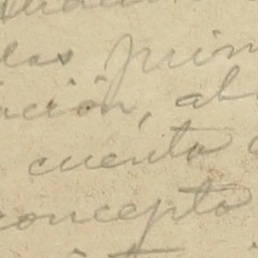 las prim
ación, ab
cuenta
concepto